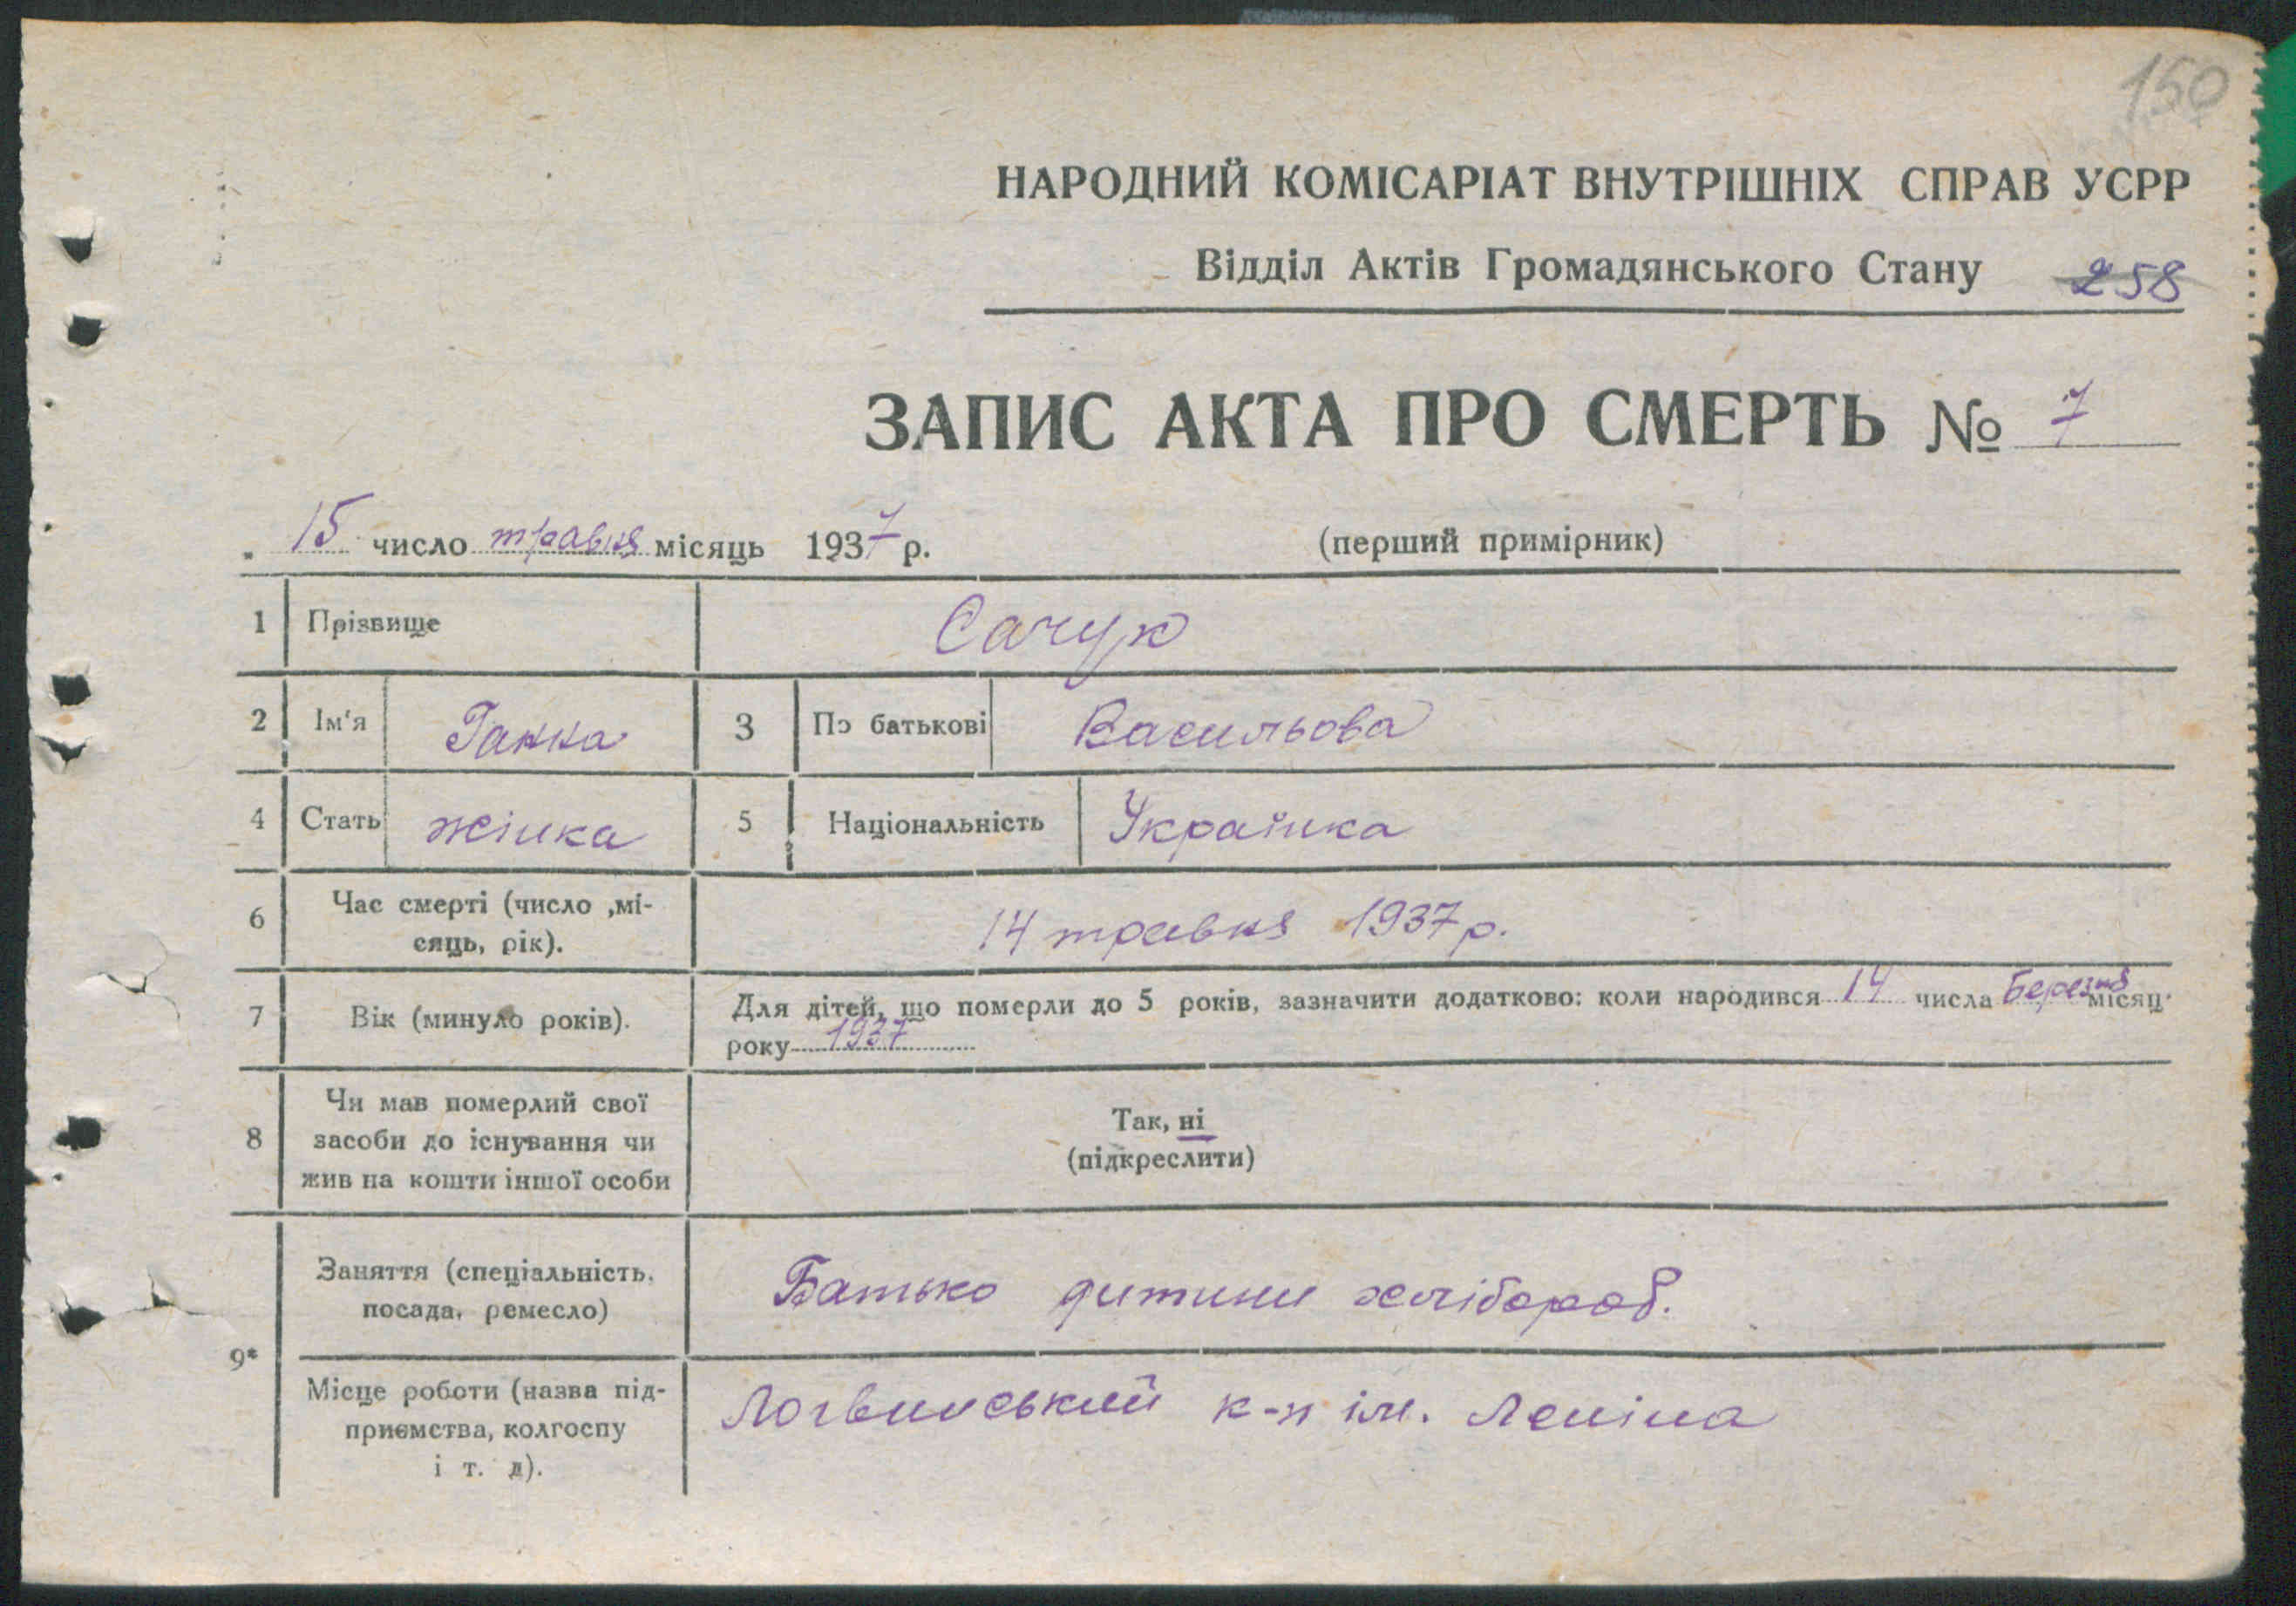 150
НАРОДНИЙ КОМІСАРІАТ ВНУТРІШНІХ СПРАВ УСРР
Відділ Актів Громадянського Стану 258
ЗАПИС АКТА ПРО СМЕРТЬ № 7
15 число травня місяць 1937 р. (перший примірник)
1 Прізвище Сачук
2 Ім'я Ганна 3 По батькові Васильова
4 Стать жінка 5 Національність Українка
6 Час смерті (число ,мі-
сяць, рік). 14 травня 1937 р.
7 Вік (минуло років). Для дітей, що померли до 5 років, зазначити додатково: коли народився 14 числа березня місяц
року 1937
8 Чи мав померлий свої
засоби до існування чи
жив на кошти іншої особи
Так, ні
(підкреслити)
9* Заняття (спеціальність,
посада, ремесло)
Батько дитини хлібороб.
Місце роботи (назва під-
приємства, колгоспу
і т. д).
Логвинський к-п ім. Леніна